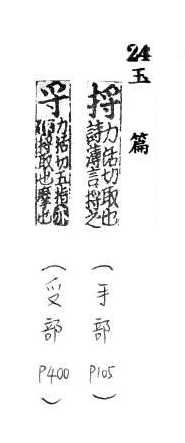 24
玉篇
捋
力活切取也
詩薄言捋之
(手部 P105)
寽
力活切五指
捋取也摩也
(受部 P400)